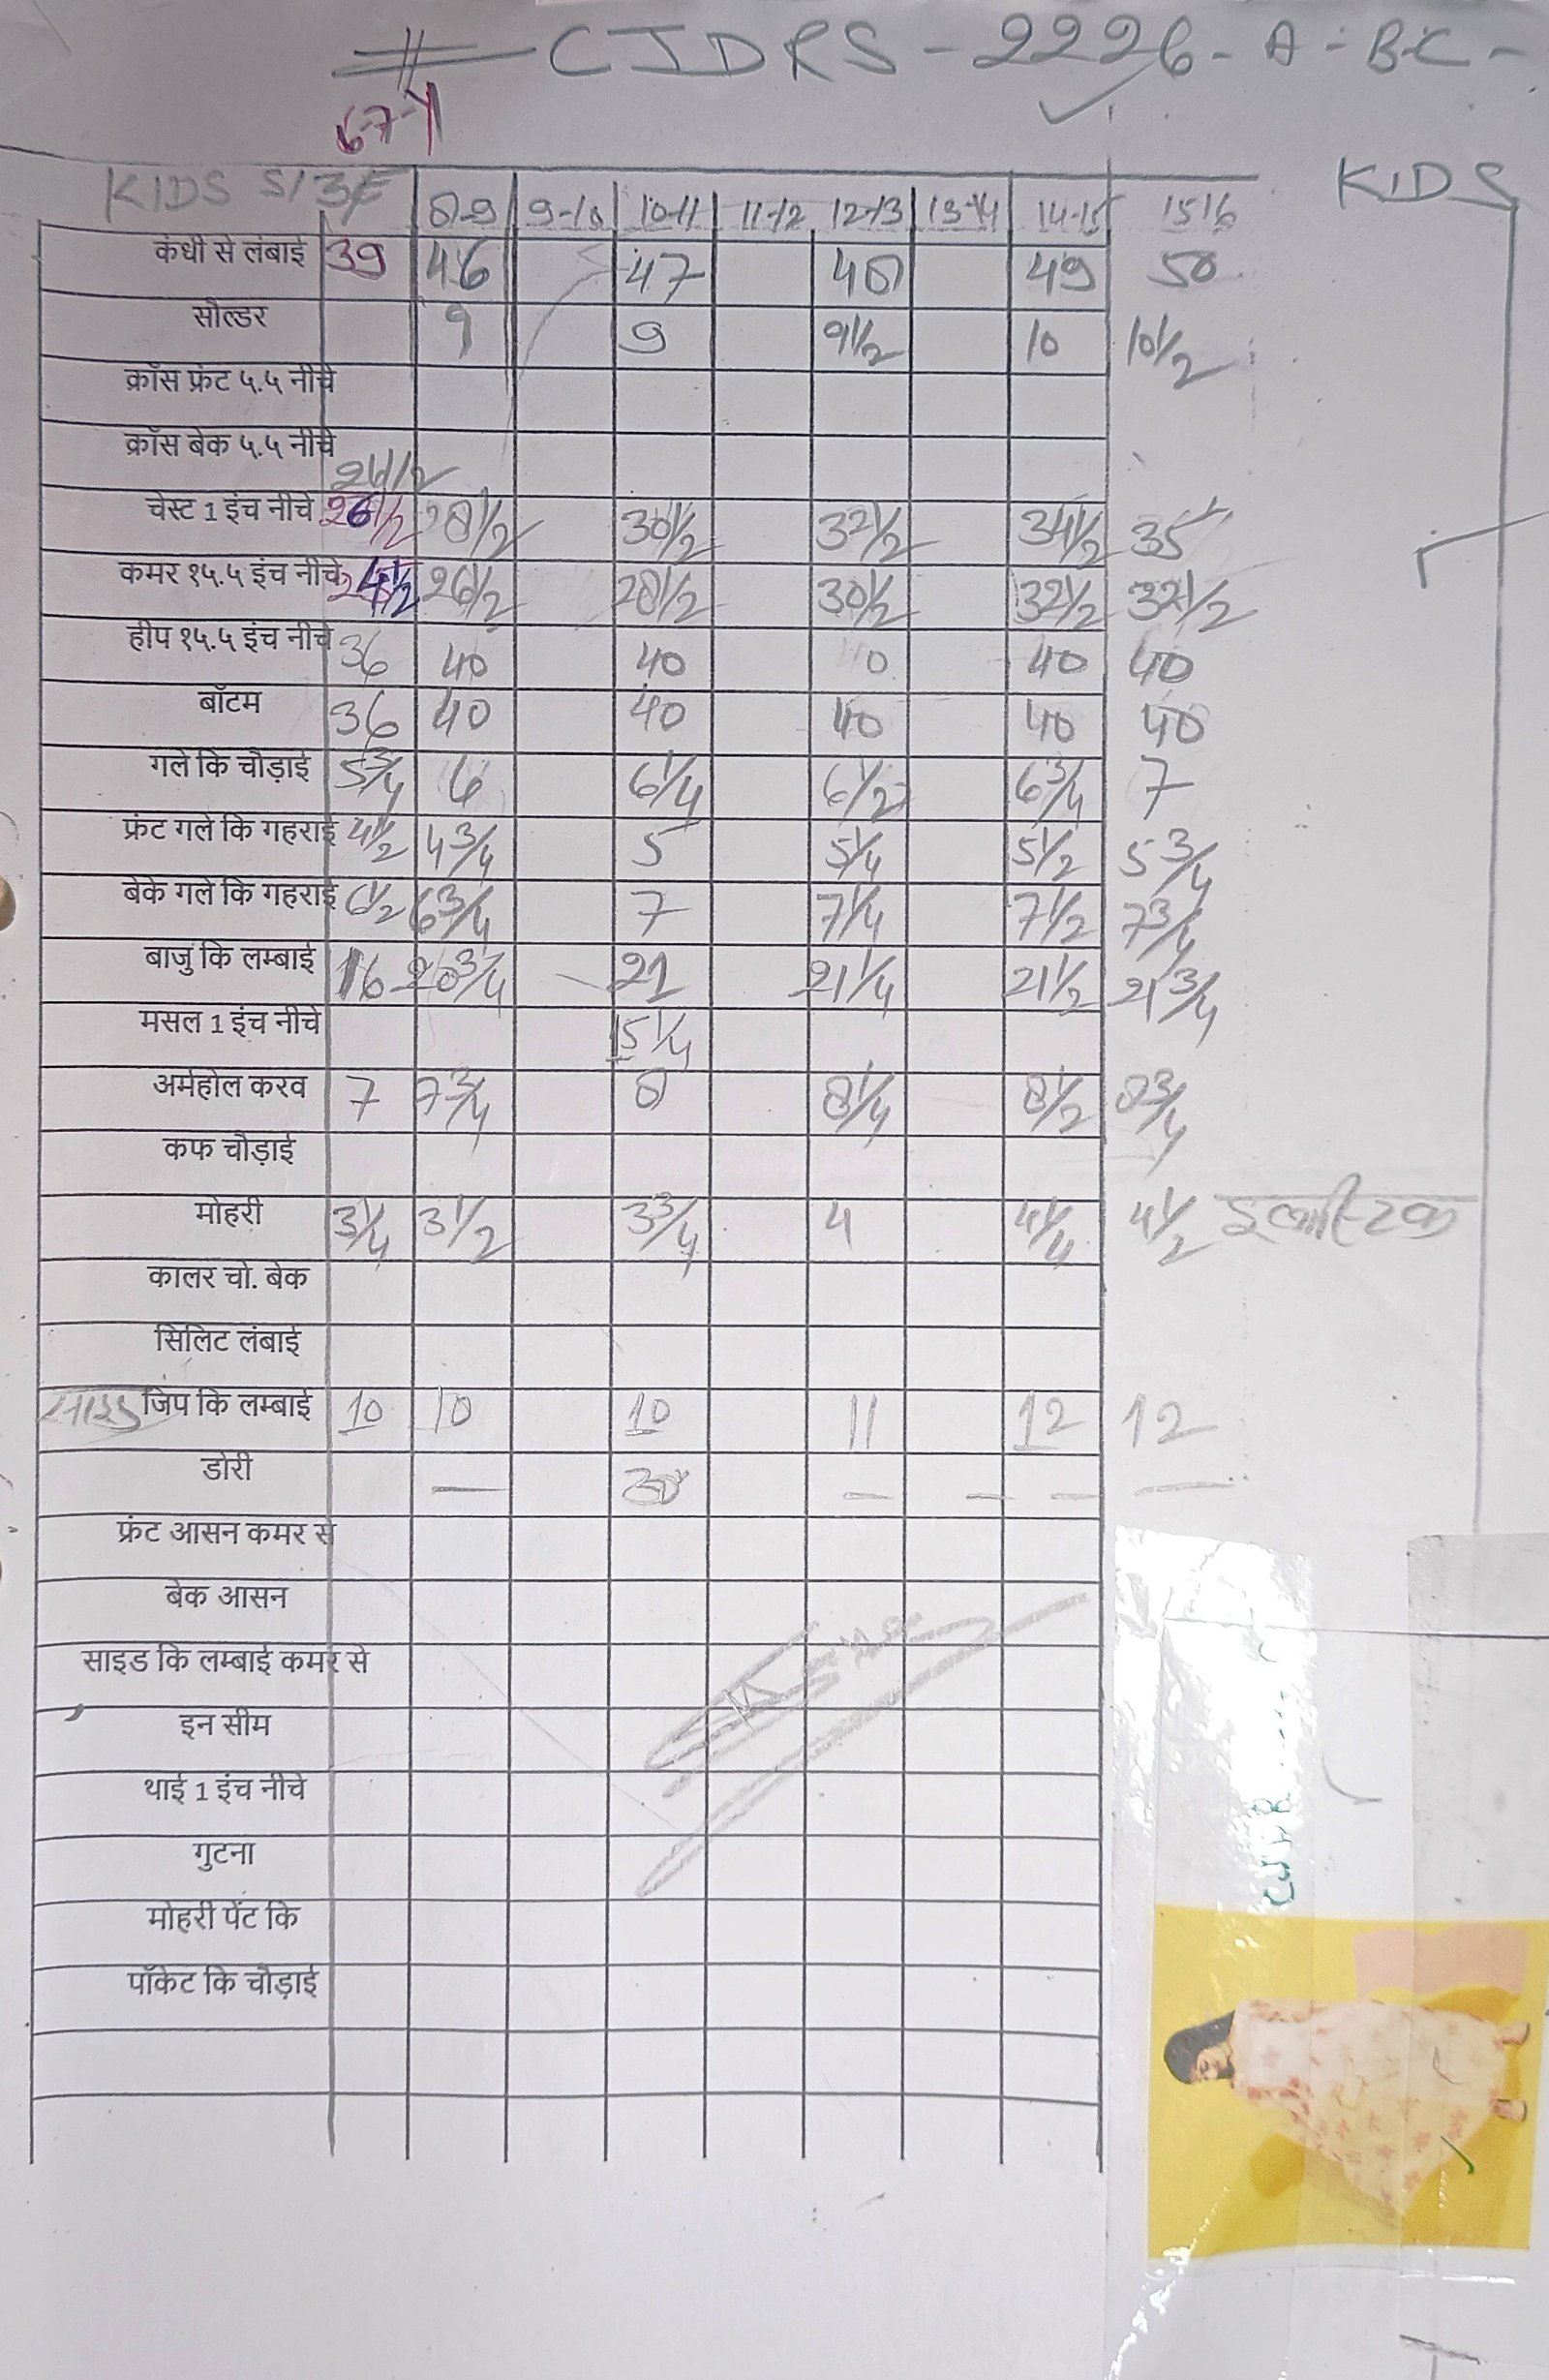 CJDRS-2226-A-B-C-
6-7-Y
KIDS
KIDS SIZE 8-9 9-10 10-11 11-12 12-13 13-14 14-15 15 16
कंधी से लंबाई 39 46 47 48 49 50
सौल्डर 9 9 9 1/2 10 10 1/2
क्रॉस फ्रंट ५.५ नीचे
क्रॉस बेक ५.५ नीचे
26 1/2
चेस्ट 1 इंच नीचे 26 1/2 28 1/2 30 1/2 32 1/2 34 1/2 35
कमर १५.५ इंच नीचे 24 1/2 26 1/2 28 1/2 30 1/2 32 1/2 32 1/2
हीप १५.५ इंच नीचे 36 40 40 40 40 40
बॉटम 36 40 40 40 40 40
गले कि चौड़ाई 5 3/4 6 6 1/4 6 1/2 6 3/4 7
फ्रंट गले कि गहराई 4 1/2 4 3/4 5 5 1/4 5 1/2 5 3/4
बेके गले कि गहराई 6 1/2 6 3/4 7 7 1/4 7 1/2 7 3/4
बाजु कि लम्बाई 16 20 3/4 21 21 1/4 21 1/2 21 3/4
मसल 1 इंच नीचे 15 1/4
अर्महोल करव 7 7 3/4 8 8 1/4 8 1/2 8 3/4
कफ चौड़ाई
मोहरी 3 1/4 3 1/2 3 3/4 4 4 1/4 4 1/2 इलास्टिक
कालर चो. बेक
सिलिट लंबाई
साइड जिप कि लम्बाई 10 10 10 11 12 12
डोरी — 30 — — — —
फ्रंट आसन कमर से
बेक आसन
साइड कि लम्बाई कमर से
इन सीम
थाई 1 इंच नीचे
गुटना
मोहरी पेंट कि
पॉकेट कि चौड़ाई